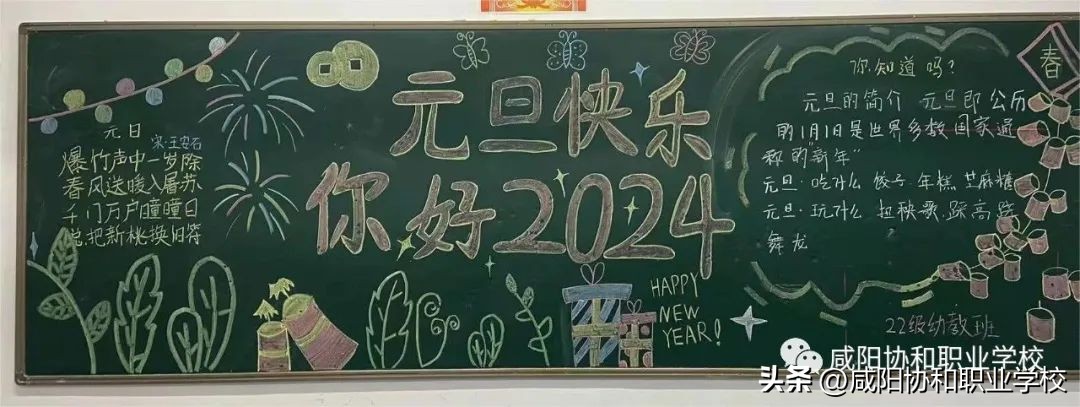 元日
宋·王安石
爆竹声中一岁除
春风送暖入屠苏
千门万户曈曈日
总把新桃换旧符
元旦快乐
你好2024
HAPPY
NEW
YEAR!
你知道吗?
元旦的简介 元旦即公历
的1月1日是世界多数国家通
称的"新年"
元旦·吃什么 饺子 年糕 芝麻糖
元旦·玩什么 扭秧歌.踩高跷
舞龙
春
22级幼教班
咸阳协和职业学校
头条@咸阳协和职业学校